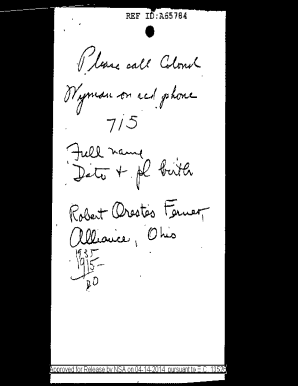 REF ID:A65784
Please call Colonel
Wyman on red phone
715
Full name
Date + pl birth
Robert Orestes Ferner,
Alliance, Ohio
1935
1915
Approved for Release by NSA on 04-14-2014 pursuant to E.O. 13526